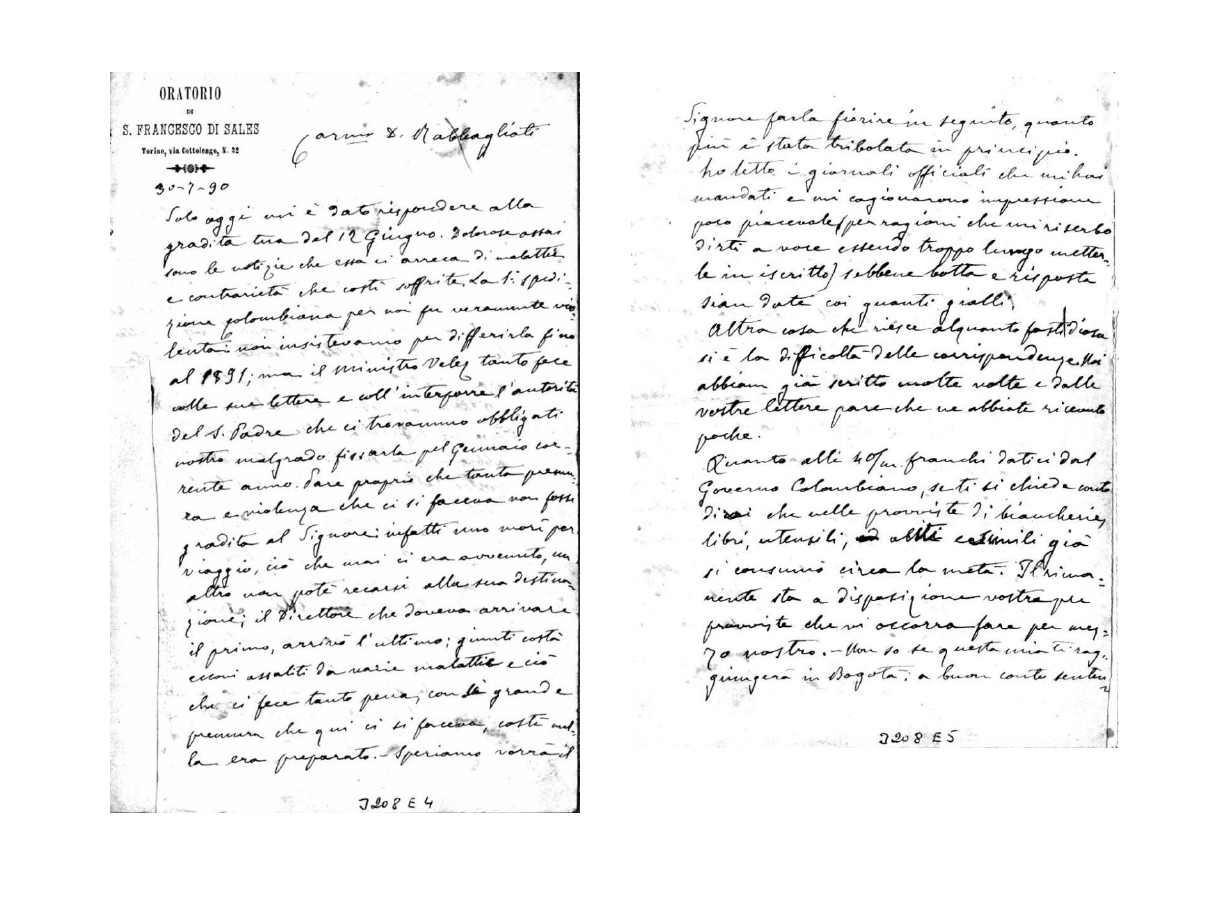 ORATORIO
DI
S. FRANCESCO DI SALES
Torino, via Cottolengo, N. 32
Carmo D. Rabbagliati
30-7-90
Solo oggi mi è dato rispondere alla
gradita tua del 12 Giugno. Dolorose assai
sono le notizie che essa ci arreca di malattie
e contrarietà che costì soffrite. La 1ª spedi-
zione Colombiana per noi fu veramente vio-
lenta: noi insistevamo per differirla fino
al 1891; ma il Ministro Velez tanto fece
colle sue lettere e coll'interporre l'autorità
del S. Padre che ci trovammo obbligati
nostro malgrado fissarla pel Gennaio cor-
rente anno. Pare proprio che tanta premu
ra e violenza che ci si faceva non fosse
gradita al Signore: infatti uno morì per
viaggio, ciò che mai ci era avvenuto, un
altro non potè recarsi alla sua destina-
zione; il Direttore che doveva arrivare
il primo, arrivò l'ultimo; giunti costà
eccovi assaliti da varie malattie e ciò
che ci fece tanto pena, con sì grande
premura che qui ci si faceva, costì nul-
la era preparato. - Speriamo vorrà il
J208 E 4
Signore farla fiorire in seguito, quanto
più è stata tribolata in principio.
Ho letto i giornali officiali che mi hai
mandati e mi cagionarono impressione
poco piacevole (per ragioni che mi riserbo
dirti a voce essendo troppo lungo metter-
le in iscritto) sebbene botta e risposta
sian date coi guanti gialli.
Altra cosa che riesce alquanto fastidiosa
si è la difficoltà delle corrispondenze. Noi
abbiam già scritto molte volte e dalle
vostre lettere pare che ne abbiate ricevute
poche.
Quanto alli 40/m franchi datici dal
Governo Colombiano, se ti si chiede conto
dirai che nelle provviste di biancherie,
libri, utensili, ed abiti e simili già
si consumò circa la metà. Il rima-
nente sta a disposizione vostra per
provviste che vi occorra fare per mez-
zo nostro. - Non so se questa mia ti rag-
giungerà in Bogotà; a buon conto senten
J208 E5